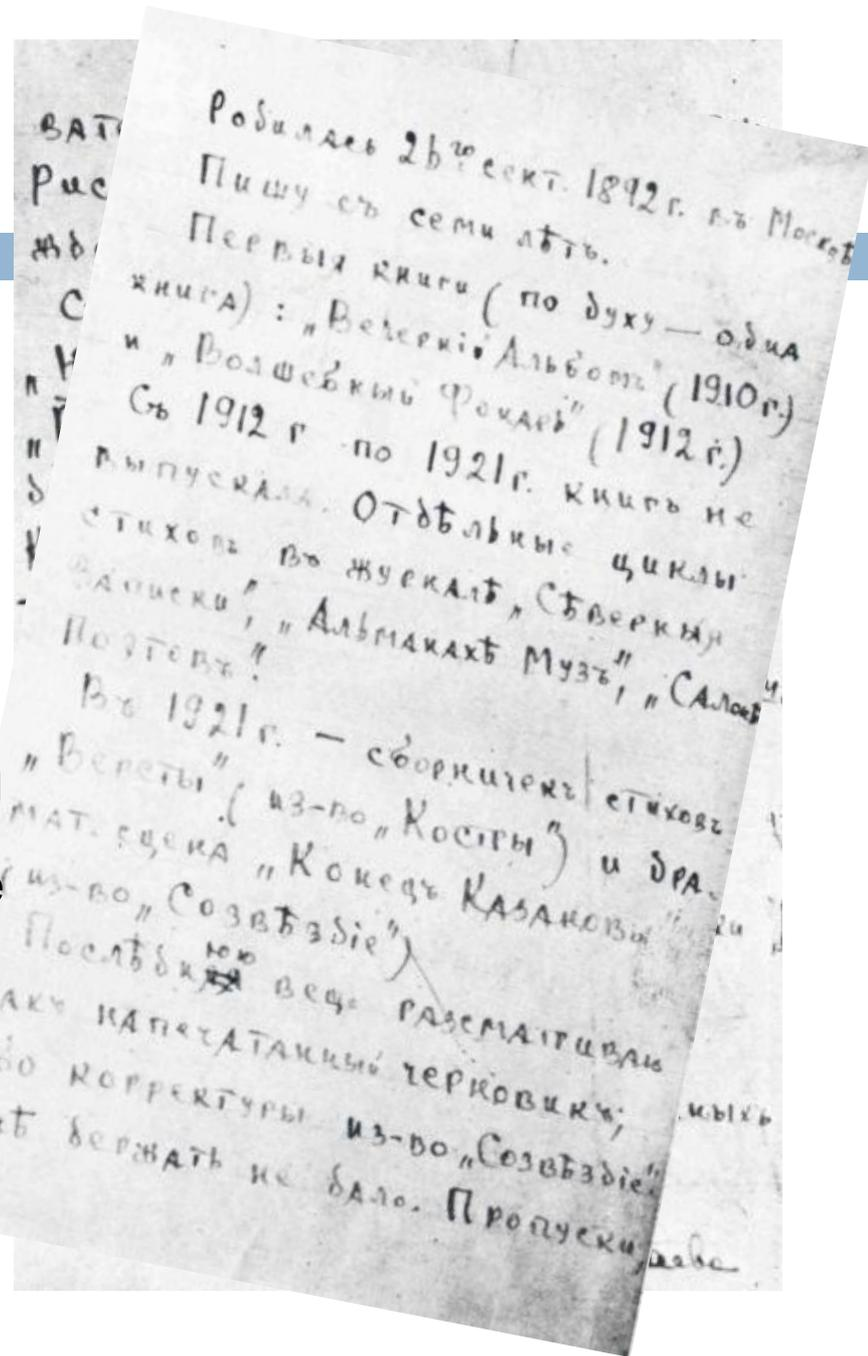 Родилась 26го сент. 1892 г. въ Москвѣ
Пишу съ семи лѣтъ.
Первыя книги ( по духу — одна
книга) : „Вечернiй Альбомъ" ( 1910 г.)
и „ Волшебный Фонарь" ( 1912 г.)
Съ 1912 г по 1921 г. книгъ не
выпускала. Отдѣльные циклы
стиховъ въ журналѣ „ Сѣверныя
Записки", „ Альманахѣ Музъ", „ Салонѣ
Поэтовъ".
Въ 1921 г. — сборничекъ стиховъ
„ Версты" ( из-во „ Костры") и дра-
мат. сцена „ Конецъ Казановы"
( из-во „ Созвѣздiе")
Послѣднюю вещь разсматриваю
акъ напечатанный черновикъ;
корректуры из-во „Созвѣздiе"
держать не дало. Пропуски,
ват
Рис
ныхъ
аева